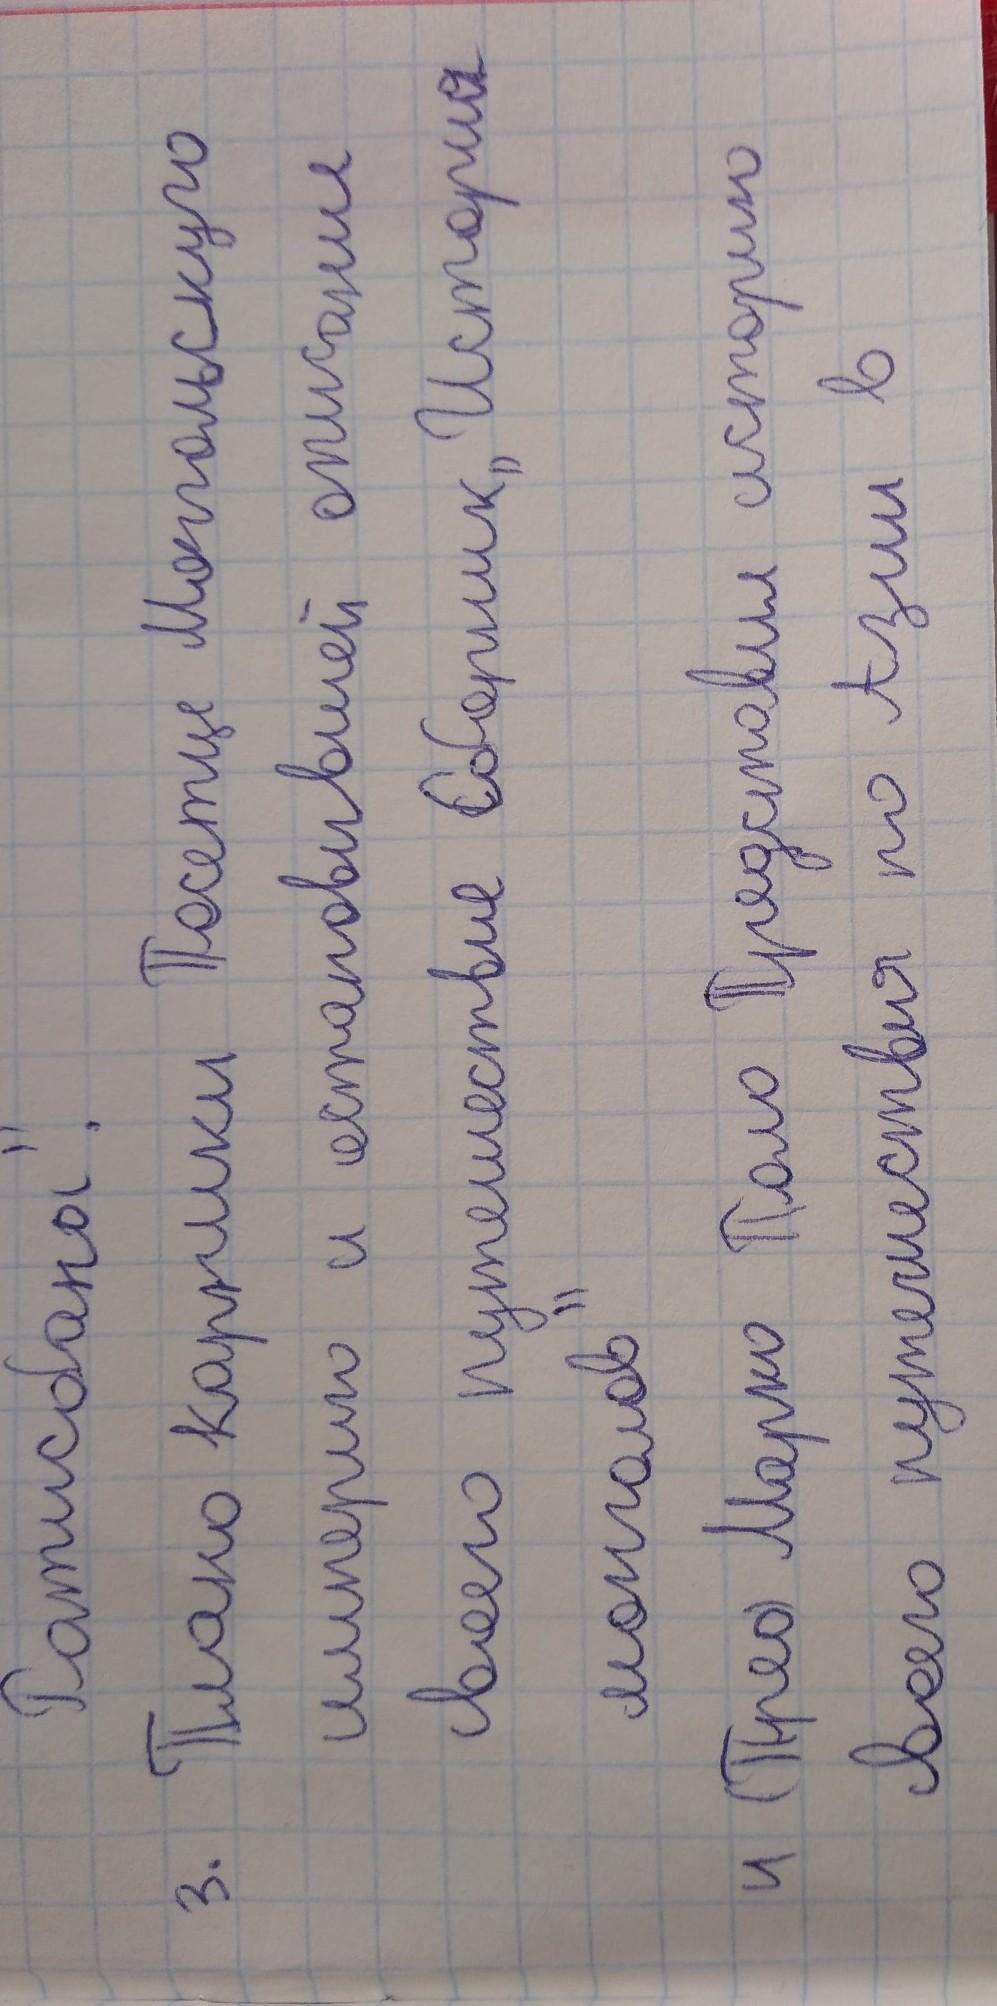 Татисбаны".
3. Плано карпики Посетце Могольскуго
имперıю и естановивией описание
воего путешествие Сборник „История
монголов"
и (Прео) Марко Поло Представил историю
всего путешествия по Азии в